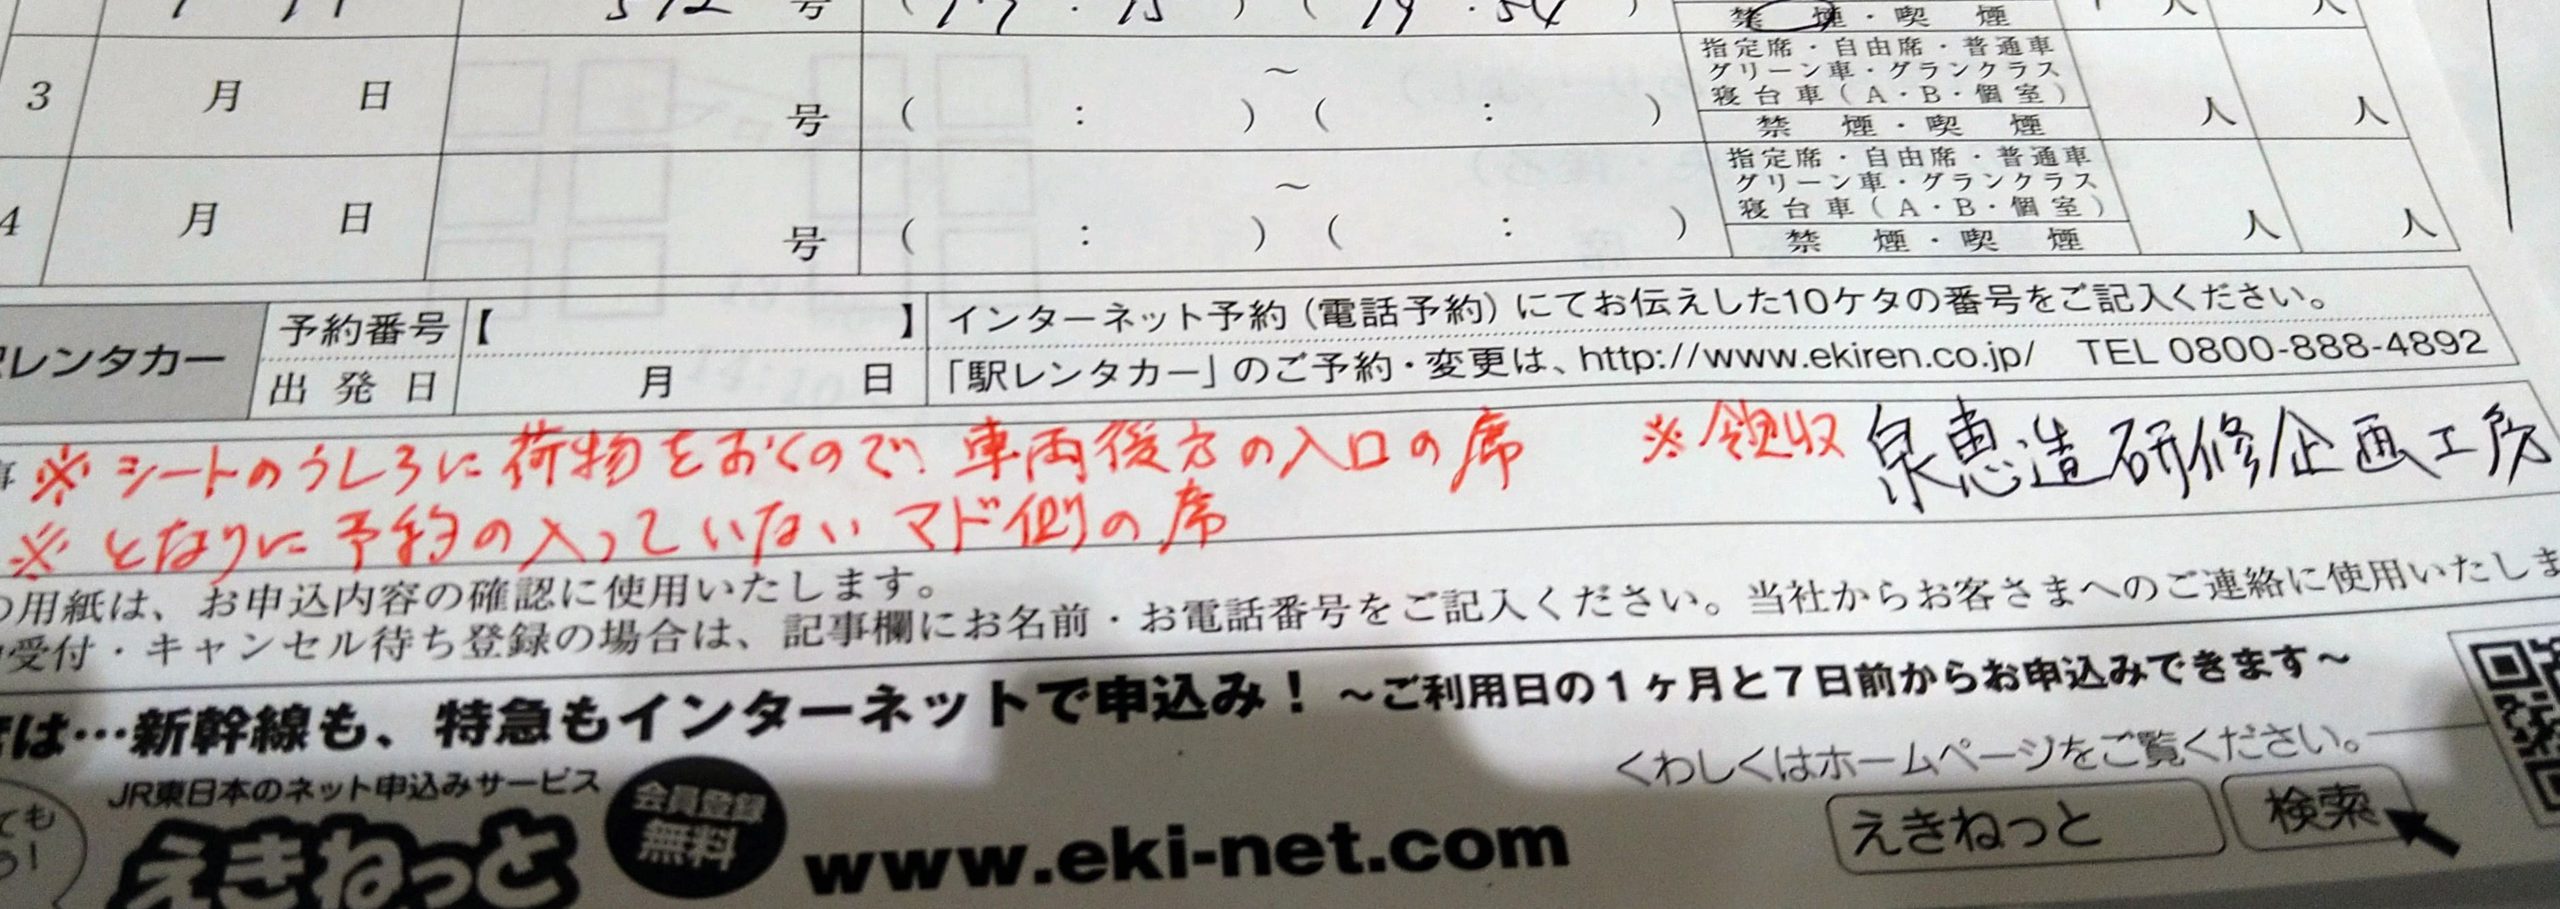 512 号 (17:15) (19:54)
禁煙・喫煙 人 人
指定席・自由席・普通車
グリーン車・グランクラス
3 月 日 号 ( : ) ~ ( : ) 寝台車(A・B・個室) 人 人
禁煙・喫煙
指定席・自由席・普通車
グリーン車・グランクラス
4 月 日 号 ( : ) ~ ( : ) 寝台車(A・B・個室) 人 人
禁煙・喫煙
レンタカー 予約番号【 】 インターネット予約(電話予約)にてお伝えした10ケタの番号をご記入ください。
出発日 月 日 「駅レンタカー」のご予約・変更は、http://www.ekiren.co.jp/ TEL 0800-888-4892
※シートのうしろに荷物をおくので、車両後方の入口の席 ※領収 泉恵造研修企画工房
※となりに予約の入っていないマド側の席
用紙は、お申込内容の確認に使用いたします。
受付・キャンセル待ち登録の場合は、記事欄にお名前・お電話番号をご記入ください。当社からお客さまへのご連絡に使用いたしま
は…新幹線も、特急もインターネットで申込み!~ご利用日の1ヶ月と7日前からお申込みできます~
くわしくはホームページをご覧ください。
JR東日本のネット申込みサービス
えきねっと 会員登録無料 www.eki-net.com えきねっと 検索